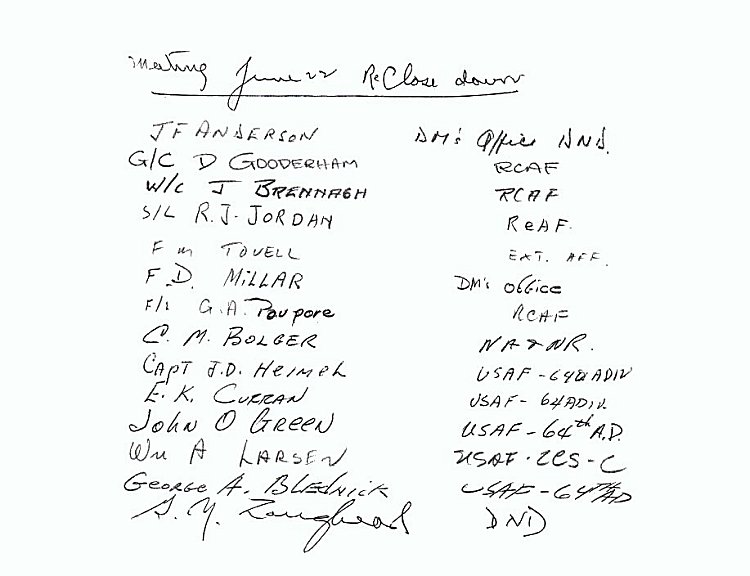 Meeting June 22 Re Close down
J F ANDERSON DM's Office DND.
G/C D GOODERHAM RCAF
W/C J BRENNAGH RCAF
S/L R.J. JORDAN RCAF.
F M TOVELL EXT. AFF.
F.D. MILLAR DM's office
F/L G.A. Poupore RCAF
C. M. BOLGER NA & NR.
CAPT J.D. HEIMEL USAF - 64th ADIV
E. K. CURRAN USAF - 64 ADIV.
JOHN O GREEN USAF - 64th A.D.
Wm A LARSEN USAF
GEORGE A. BLEDNICK USAF - 64TH AD
DND